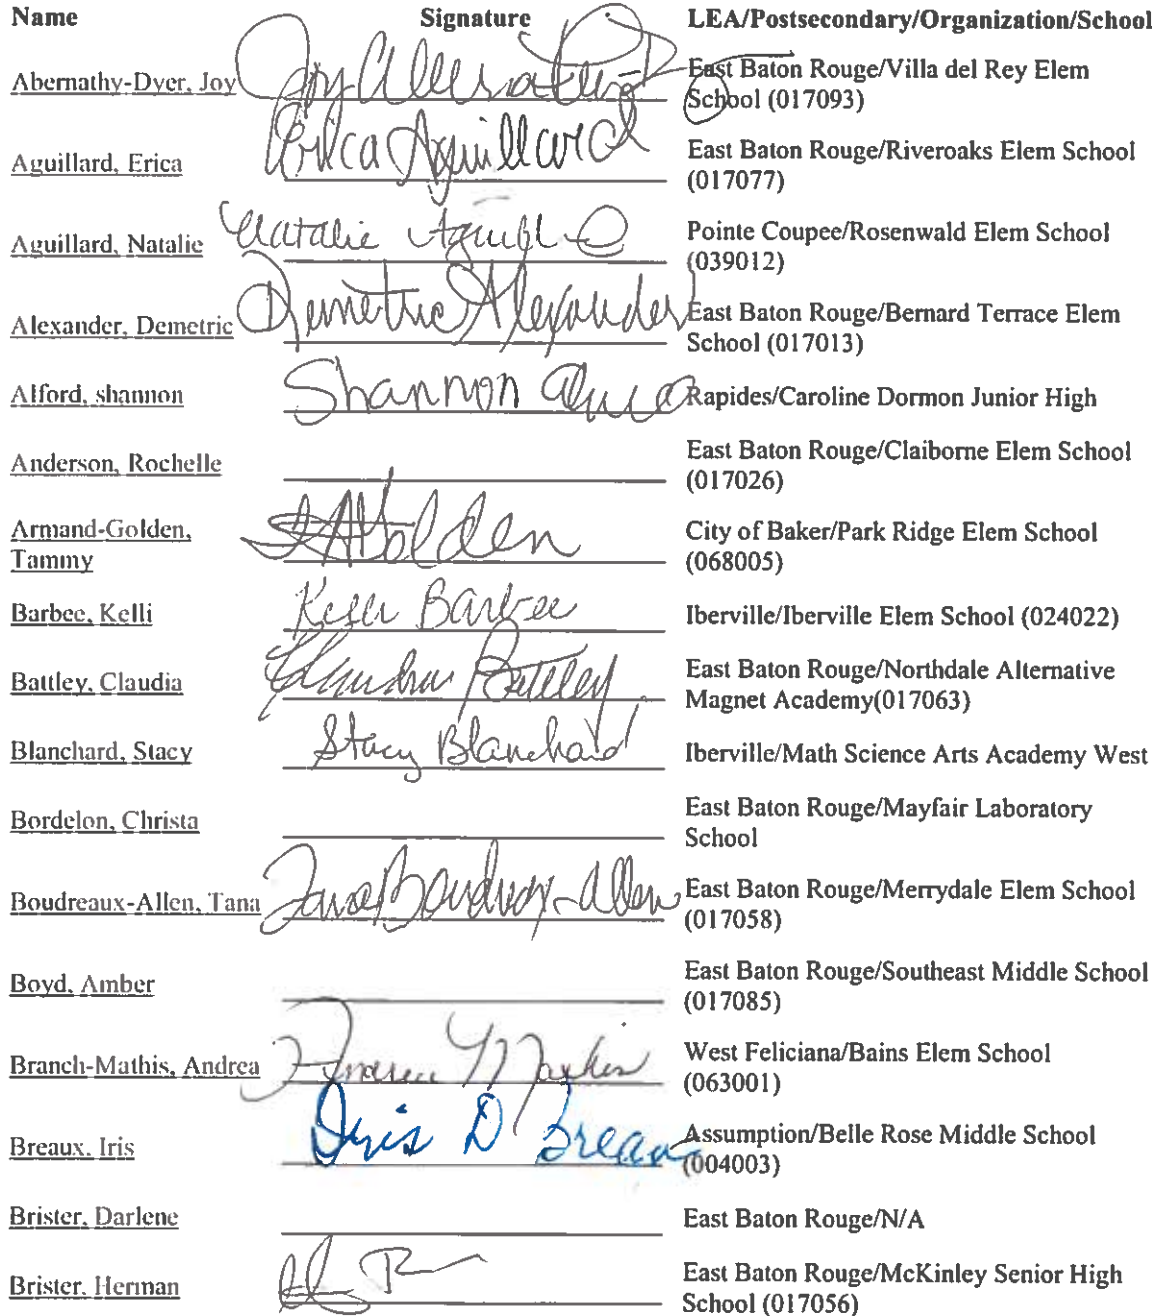 Name Signature LEA/Postsecondary/Organization/School
Abernathy-Dyer, Joy Joy East Baton Rouge/Villa del Rey Elem
School (017093)
Aguillard, Erica Erica Aguillard East Baton Rouge/Riveroaks Elem School
(017077)
Aguillard, Natalie Natalie Pointe Coupee/Rosenwald Elem School
(039012)
Alexander, Demetric Demetric Alexander East Baton Rouge/Bernard Terrace Elem
School (017013)
Alford, shannon Shannon Rapides/Caroline Dormon Junior High
Anderson, Rochelle East Baton Rouge/Claiborne Elem School
(017026)
Armand-Golden, City of Baker/Park Ridge Elem School
Tammy (068005)
Barbee, Kelli Kelli Barbee Iberville/Iberville Elem School (024022)
Battley, Claudia Claudia Battley East Baton Rouge/Northdale Alternative
Magnet Academy(017063)
Blanchard, Stacy Stacy Blanchard Iberville/Math Science Arts Academy West
Bordelon, Christa East Baton Rouge/Mayfair Laboratory
School
Boudreaux-Allen, Tana Tana Boudreaux-Allen East Baton Rouge/Merrydale Elem School
(017058)
Boyd, Amber East Baton Rouge/Southeast Middle School
(017085)
Branch-Mathis, Andrea Andrea West Feliciana/Bains Elem School
(063001)
Breaux, Iris Iris D Breaux Assumption/Belle Rose Middle School
(004003)
Brister, Darlene East Baton Rouge/N/A
Brister, Herman East Baton Rouge/McKinley Senior High
School (017056)